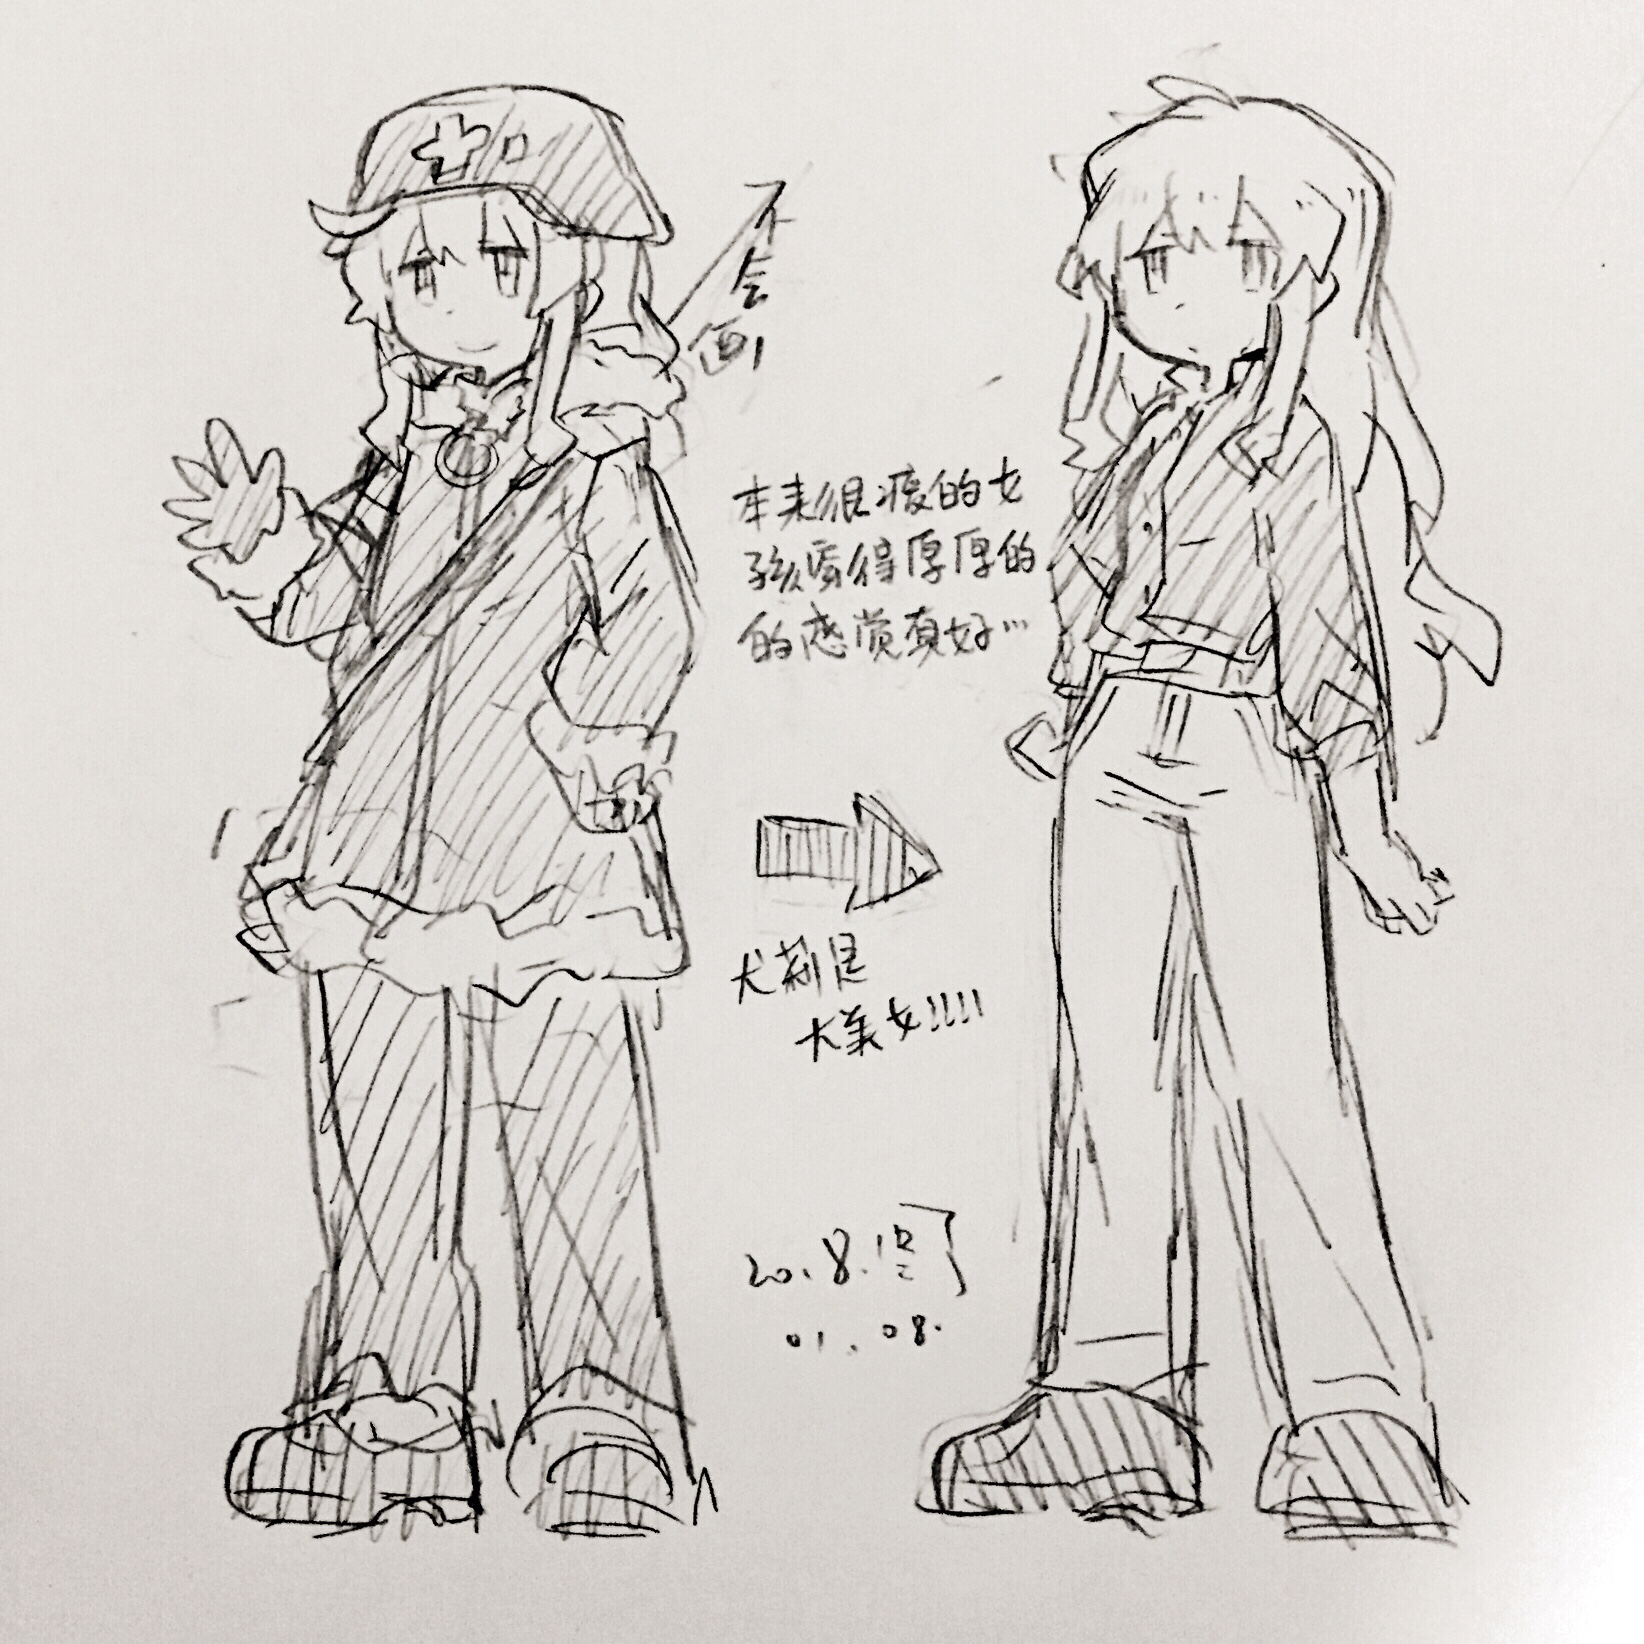 不会画
本来很瘦的女
孩穿得厚厚的
的感觉真好…
犬莉是
大美女!!!!
20.8.
01.08.